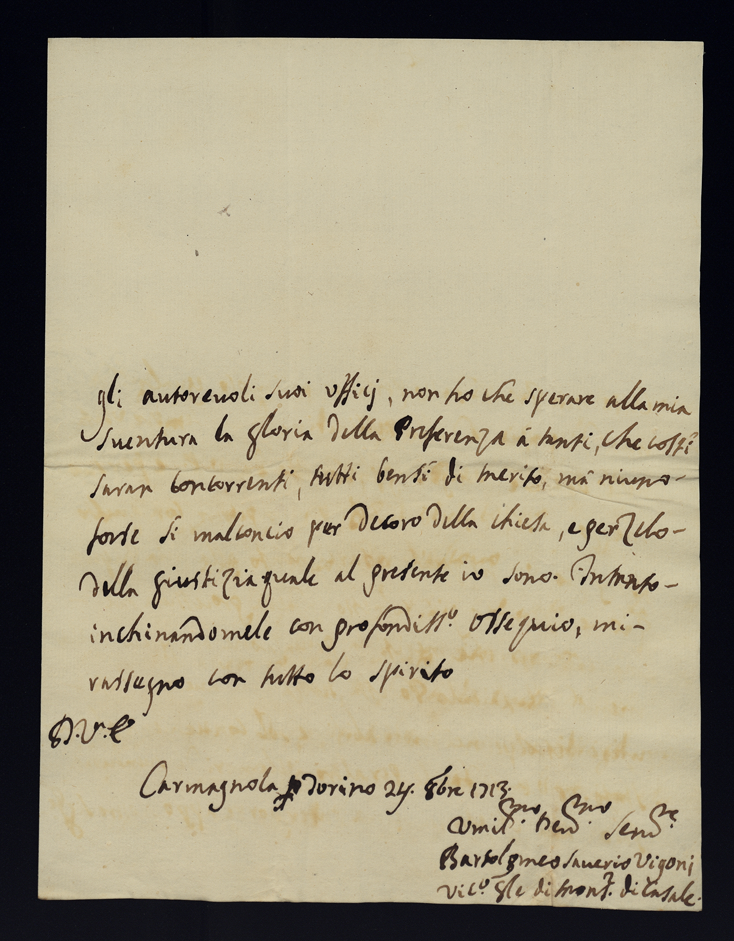 gli autorevoli suoi ufficij, non ho che sperare alla mia
sventura la gloria della Preferenza à tanti, che costì
saran concorrenti, tutti bensì di merito, mà niuno
forse sì malconcio per decoro della chiesa, e per zelo
della giustizia quale al presente io sono. Intanto
inchinandomele con profondiss.o ossequio, mi
rassegno con tutto lo spirito
D. V. E.
Carmagnola p Torino 24. 8bre 1713.
Umil.mo Dev.mo Serv.re
Bartolomeo Saverio Vigoni
Vic.o gle di Monf. di Casale.